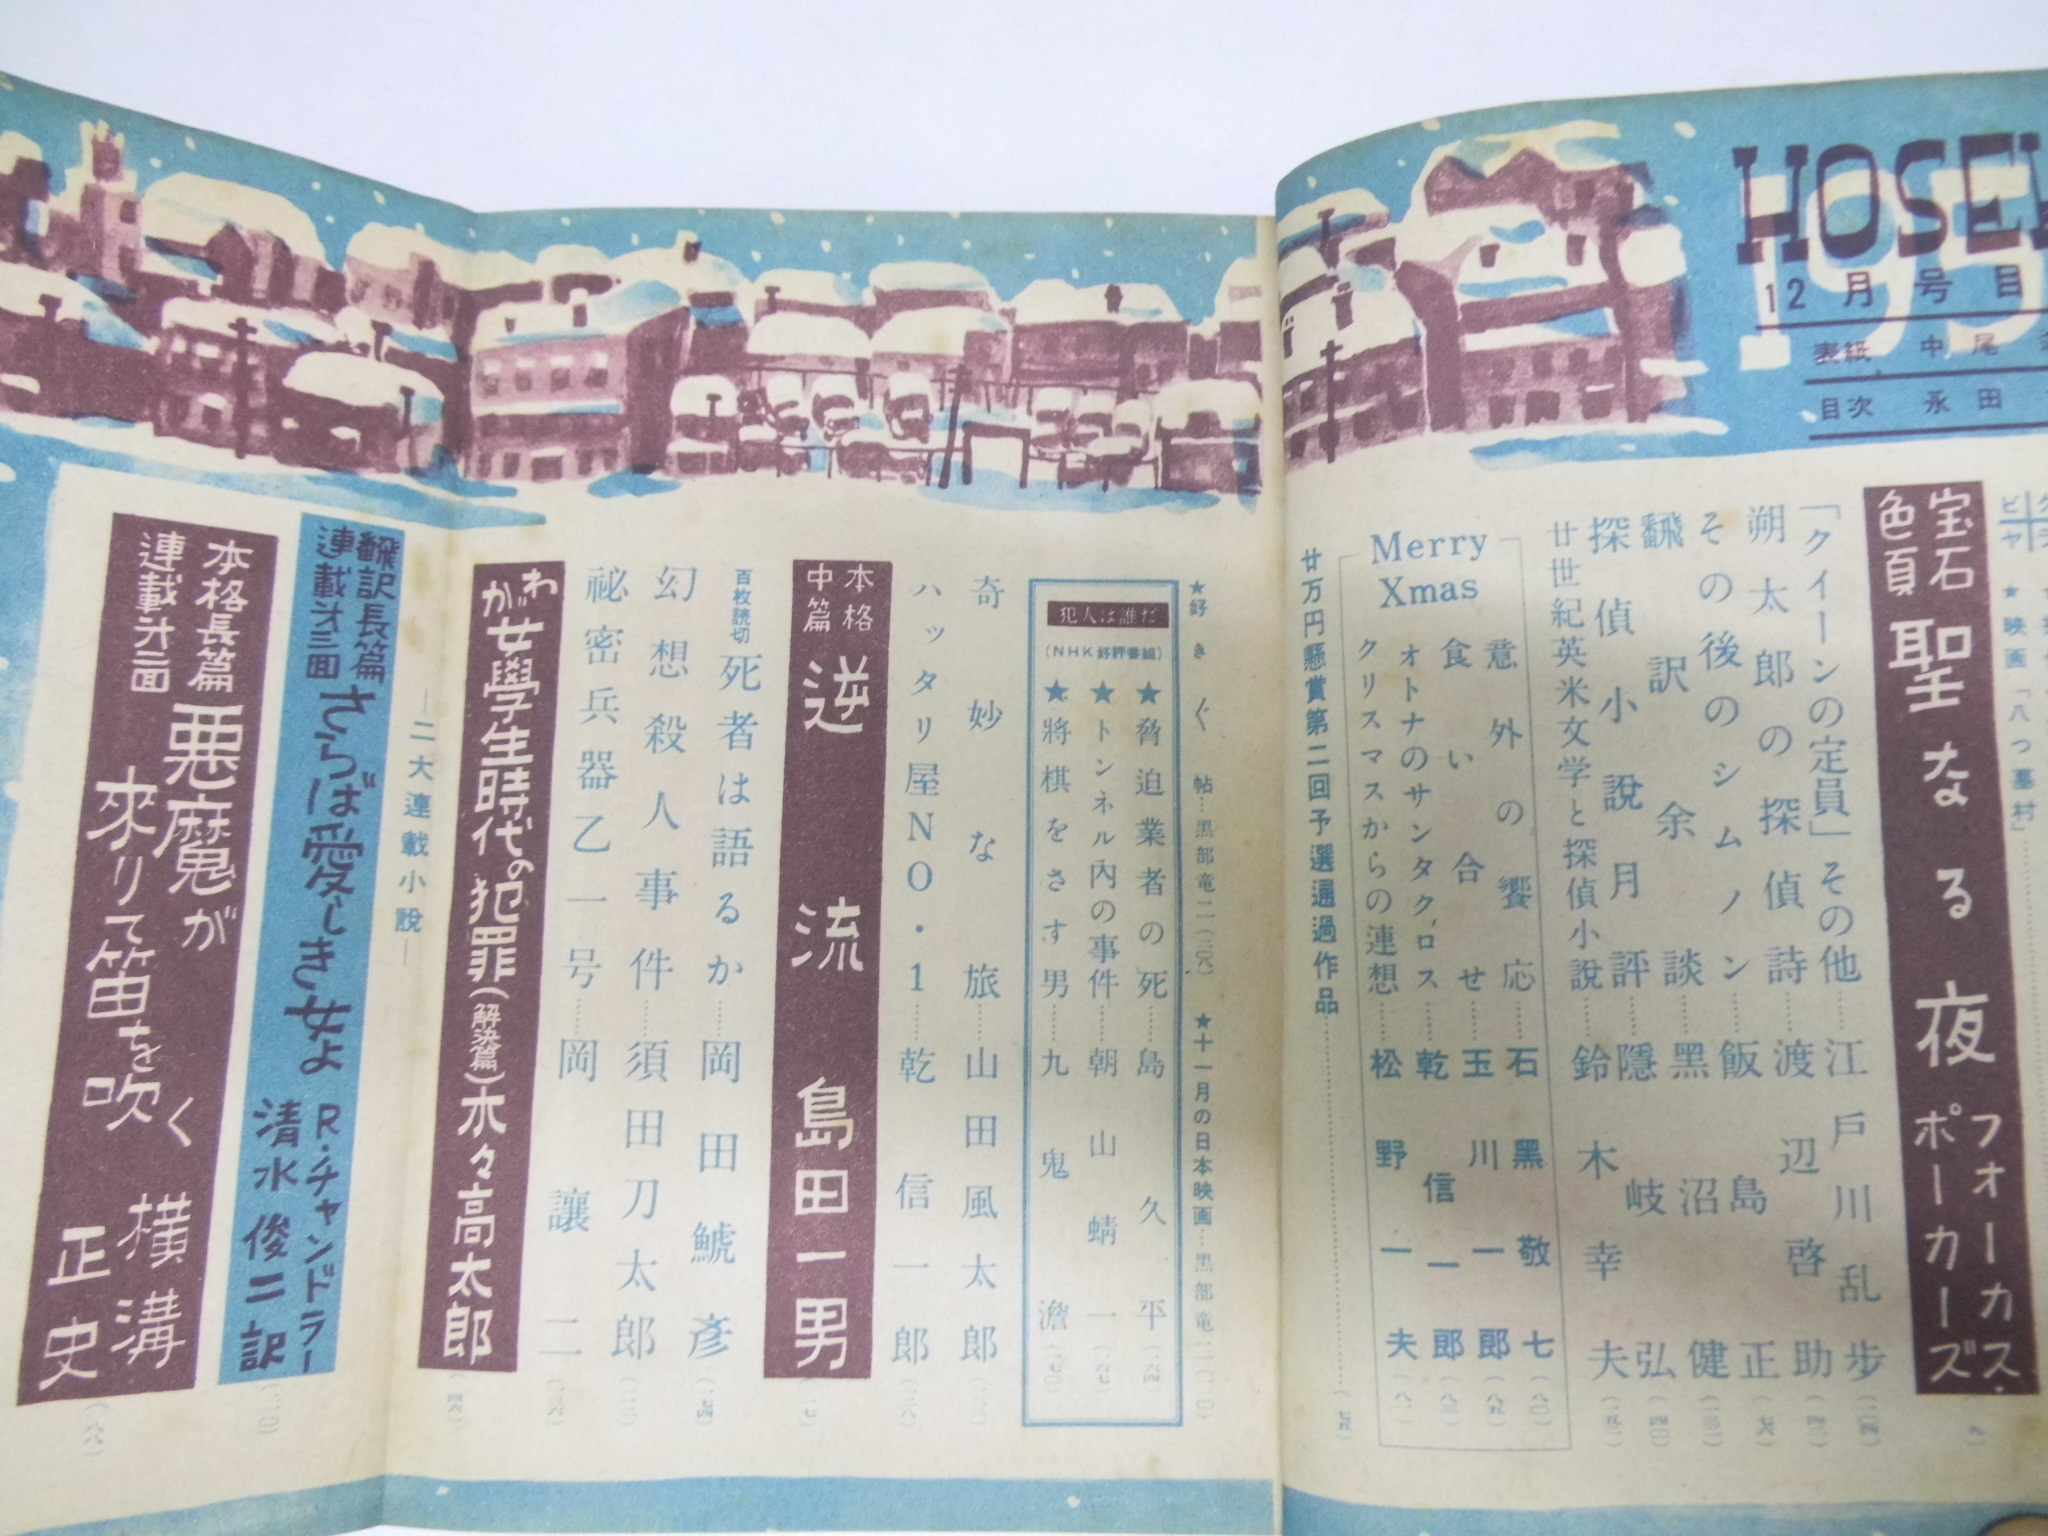 12月号目
表紙 中尾
目次 永田
★映画「八つ墓村」
宝石色頁 聖なる夜 フォーカス・ポーカーズ
「クイーンの定員」その他……江戸川乱歩
朔太郎の探偵詩……渡辺啓助
その後のシムノン……飯島正
飜訳余談……黑沼健
探偵小說月評……隱岐弘
廿世紀英米文学と探偵小說……鈴木幸夫
Merry Xmas
意外の饗応……石黑敬七
食い合せ……玉川一郎
オトナのサンタクロス……乾信一郎
クリスマスからの連想……松野一夫
廿万円懸賞第二回予選通過作品
★好きぐ帖……黑部竜二
★十一月の日本映画……黑部竜二
犯人は誰だ
(NHK好評番組)
★脅迫業者の死……島久平
★トンネル內の事件……朝山蜻一
★將棋をさす男……九鬼澹
奇妙な旅……山田風太郎
ハッタリ屋NO・1……乾信一郎
本格中篇 逆流 島田一男
百枚読切 死者は語るか……岡田鯱彦
幻想殺人事件……須田刀太郎
祕密兵器乙一号……岡讓二
わが女學生時代の犯罪(解決篇)木々高太郎
―二大連載小說―
飜訳長篇 連載才三回 さらば愛しき女よ R・チャンドラー 清水俊二訳
本格長篇 連載才二回 悪魔が來りて笛を吹く 横溝正史